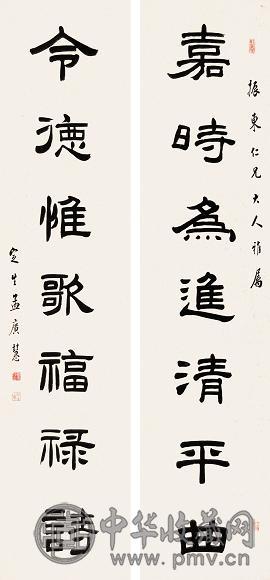 振東仁兄大人雅屬
嘉時爲進清平曲
令德惟歌福禄詩
定生孟廣慧
中华收藏网
www.pmv.cn